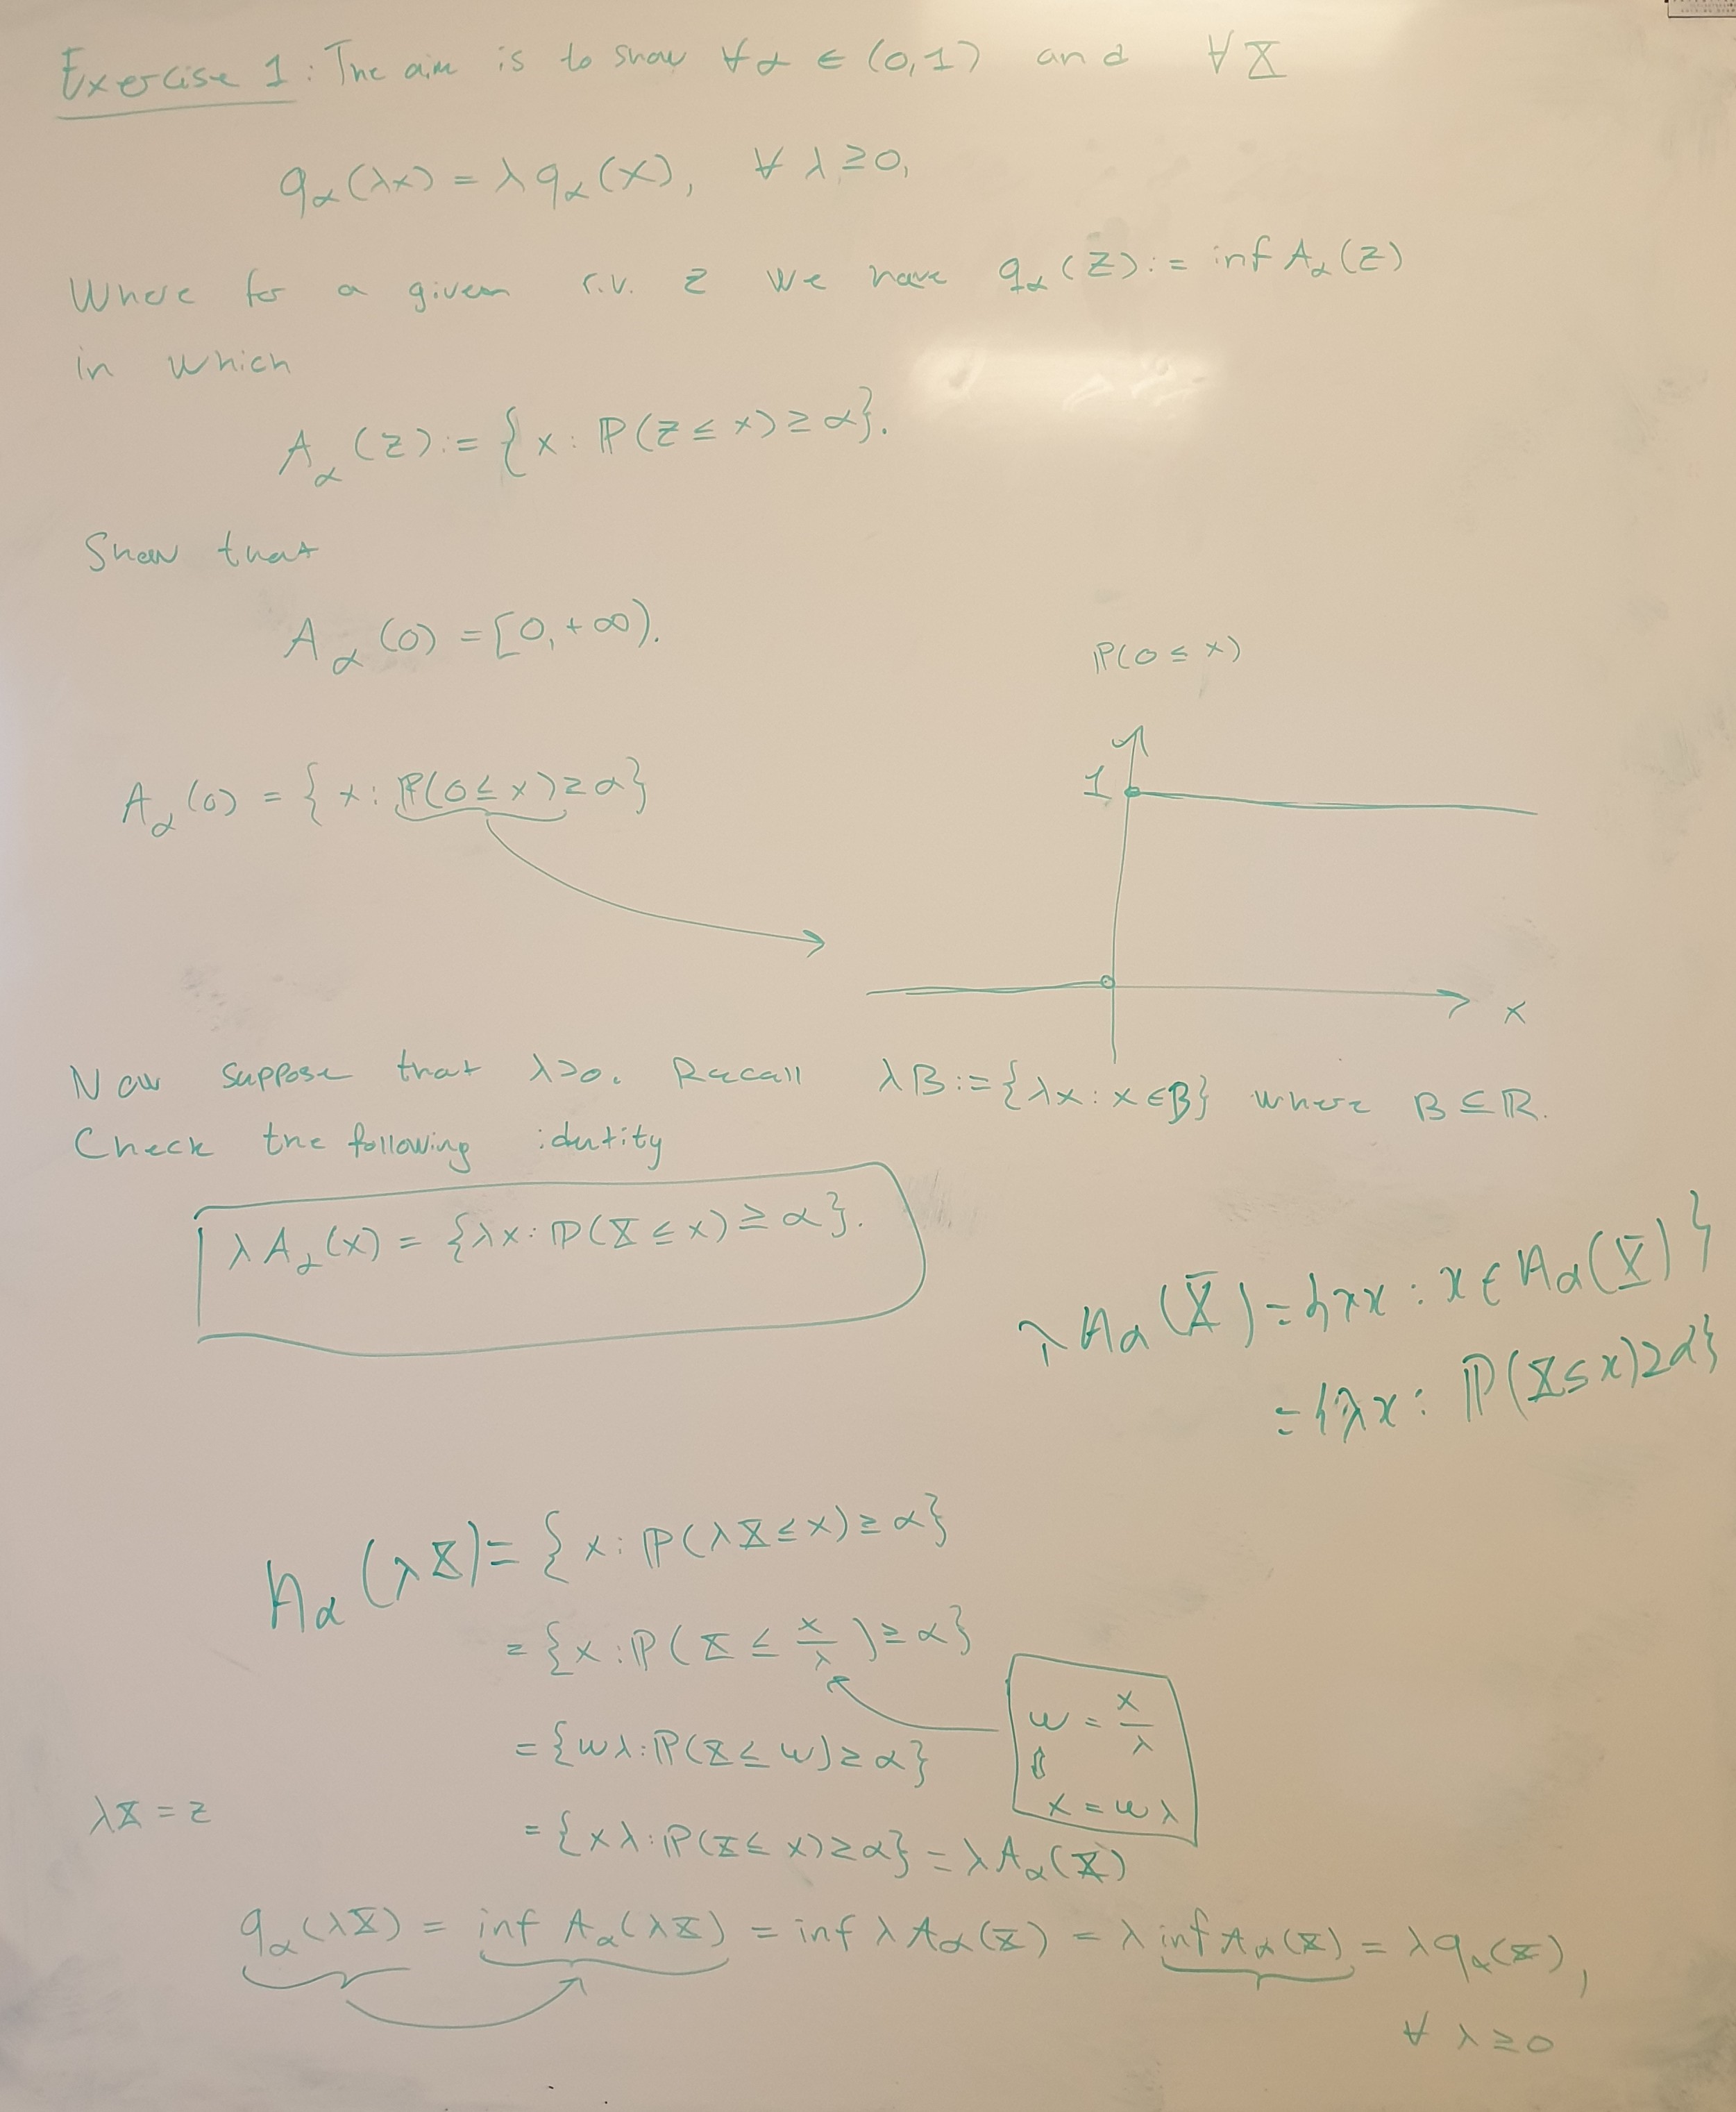 Exercise 1: The aim is to show ∀α ∈ (0,1) and ∀X
qα(λx) = λqα(X), ∀ λ ≥ 0,
Where for a given r.v. Z we have qα(Z) := inf Aα(Z)
in which
Aα(Z) := {x : ℙ(Z ≤ x) ≥ α}.
Show that
Aα(0) = [0, +∞).
ℙ(0 ≤ x)
1
Aα(0) = {x : ℙ(0 ≤ x) ≥ α}
x
Now suppose that λ>0. Recall λB := {λx : x ∈ B} where B ⊆ ℝ.
Check the following identity
λAα(X) = {λx : ℙ(X ≤ x) ≥ α}.
λAα(X) = {λx : x ∈ Aα(X)}
= {λx : ℙ(X ≤ x) ≥ α}
Aα(λX) = {x : ℙ(λX ≤ x) ≥ α}
= {x : ℙ(X ≤ x/λ) ≥ α}
w = x/λ
⇕
x = wλ
= {wλ : ℙ(X ≤ w) ≥ α}
λX = Z
= {xλ : ℙ(X ≤ x) ≥ α} = λAα(X)
qα(λX) = inf Aα(λX) = inf λAα(X) = λ inf Aα(X) = λqα(X),
∀ λ ≥ 0